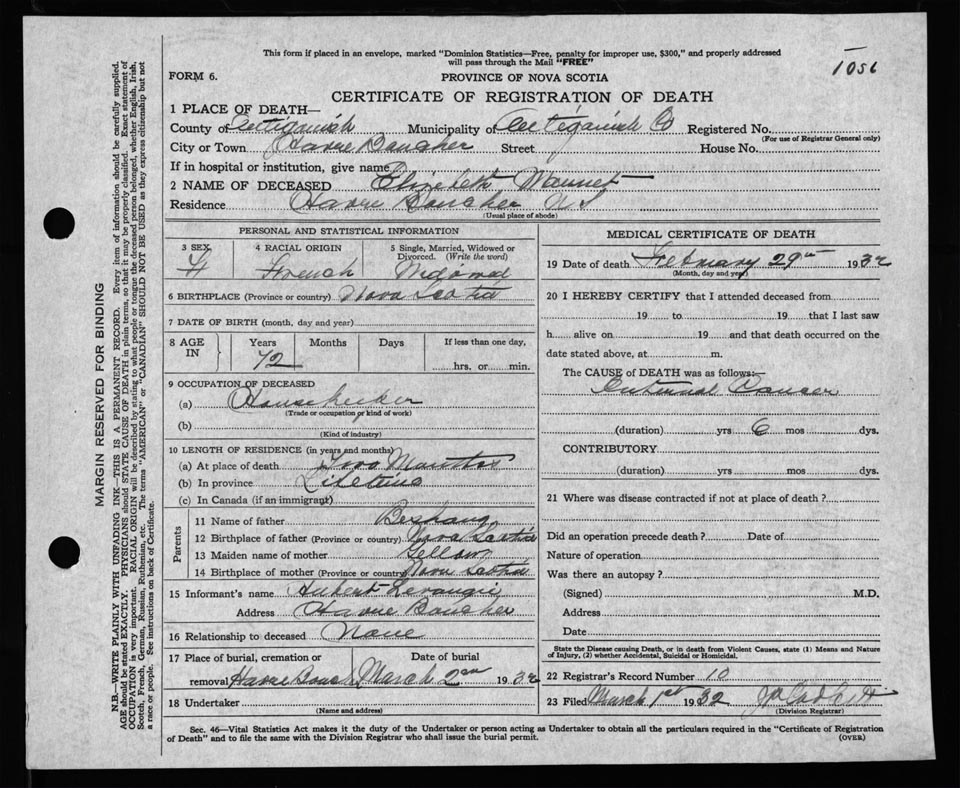 This form if placed in an envelope, marked "Dominion Statistics—Free, penalty for improper use, $300," and properly addressed
will pass through the Mail "FREE"
1056
FORM 6.
PROVINCE OF NOVA SCOTIA
CERTIFICATE OF REGISTRATION OF DEATH
1 PLACE OF DEATH—
County of Antigonish Municipality of Antigonish Co Registered No.
(For use of Registrar General only)
City or Town Havre Baucher Street House No.
If in hospital or institution, give name
2 NAME OF DECEASED Elizebeth
Residence Havre Baucher N S
(Usual place of abode)
PERSONAL AND STATISTICAL INFORMATION
3 SEX 4 RACIAL ORIGIN 5 Single, Married, Widowed or Divorced. (Write the word)
F French Widowed
6 BIRTHPLACE (Province or country) Nova Scotia
7 DATE OF BIRTH (month, day and year)
8 AGE IN Years Months Days If less than one day,
72 hrs. or min.
9 OCCUPATION OF DECEASED
(a) Housekeeper
(Trade or occupation or kind of work)
(b)
(Kind of industry)
10 LENGTH OF RESIDENCE (in years and months)
(a) At place of death Two Months
(b) In province Lifetime
(c) In Canada (if an immigrant)
Parents
11 Name of father
12 Birthplace of father (Province or country) Nova Scotia
13 Maiden name of mother
14 Birthplace of mother (Province or country) Nova Scotia
15 Informant's name Hubert Levangie
Address Havre Baucher
16 Relationship to deceased None
17 Place of burial, cremation or removal Date of burial
Havre Bouch March 2nd 1932
18 Undertaker
(Name and address)
MEDICAL CERTIFICATE OF DEATH
19 Date of death February 29th 1932
(Month, day and year)
20 I HEREBY CERTIFY that I attended deceased from
19 to 19 that I last saw
h alive on 19 and that death occurred on the
date stated above, at m.
The CAUSE of DEATH was as follows:—
Internal Cancer
(duration) yrs 6 mos dys.
CONTRIBUTORY
(duration) yrs mos dys.
21 Where was disease contracted if not at place of death?
Did an operation precede death? Date of
Nature of operation
Was there an autopsy?
(Signed) M.D.
Address
Date
State the Disease causing Death, or in death from Violent Causes, state (1) Means and Nature
of Injury, (2) whether Accidental, Suicidal or Homicidal.
22 Registrar's Record Number 10
23 Filed March 1st 1932
(Division Registrar)
Sec. 46—Vital Statistics Act makes it the duty of the Undertaker or person acting as Undertaker to obtain all the particulars required in the "Certificate of Registration
of Death" and to file the same with the Division Registrar who shall issue the burial permit. (OVER)
MARGIN RESERVED FOR BINDING
N.B.—WRITE PLAINLY WITH UNFADING INK—THIS IS A PERMANENT RECORD. Every item of information should be carefully supplied.
AGE should be stated EXACTLY. PHYSICIANS should STATE CAUSE OF DEATH in plain terms, so that it may be properly classified. Exact statement of
OCCUPATION is very important. RACIAL ORIGIN will be described by stating to what people or tongue the deceased person belonged, whether English, Irish,
Scotch, French, German, Russian, Ruthenian, etc. The terms "AMERICAN" or "CANADIAN" SHOULD NOT BE USED as they express citizenship but not
a race or people. See instructions on back of Certificate.